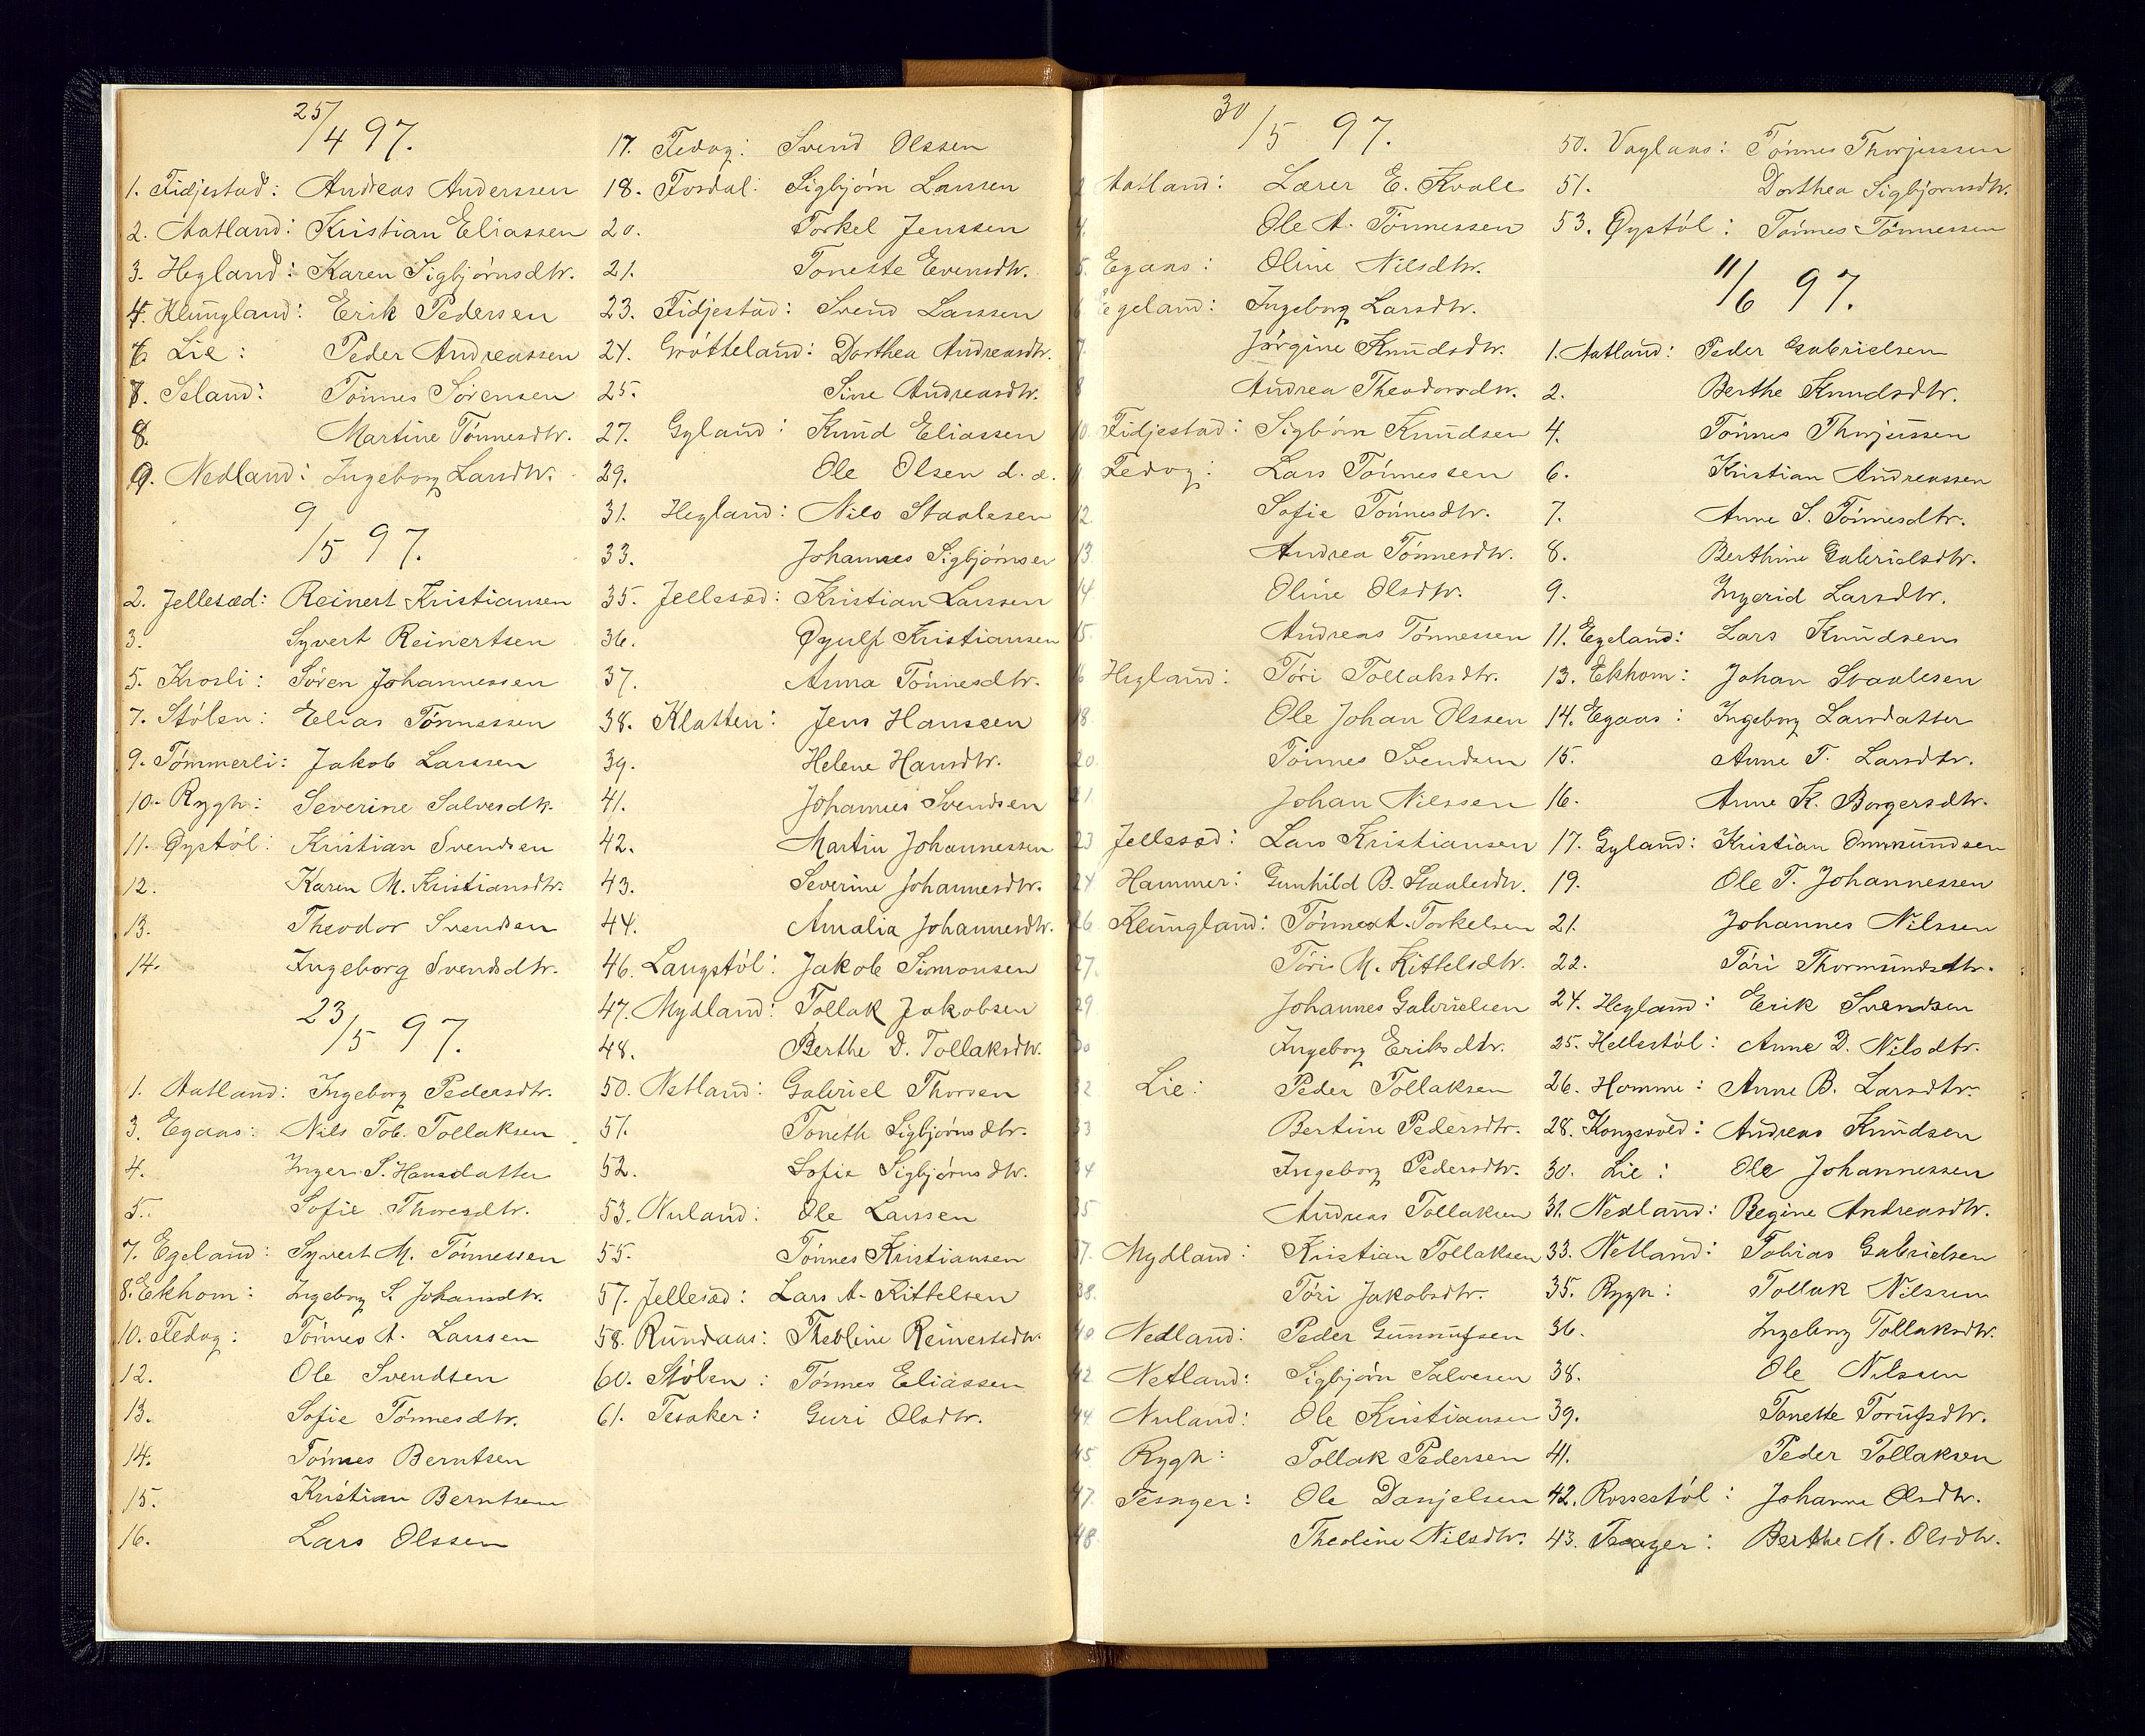 25/4 97.
1. Fidjestad: Andreas Anderssen
2. Aatland: Kristian Eliassen
3. Hegland: Karen Sigbjørnsdtr.
4. Klungland: Erik Pedersen
6 Lie: Peder Andreassen
7. Seland: Tønnes Sørensen
8. Martine Tønnesdtr.
9. Nedland: Ingeborg Larsdtr.
9/5 97.
2. Jellesæd: Reinert Kristiansen
3. Syvert Reinertsen
5. Krosli: Søren Johannessen
7. Stølen: Elias Tønnessen
9. Tømmerli: Jakob Larssen
10. Rygh: Severine Salvesdtr.
11. Øystøl: Kristian Svendsen
12. Karen M. Kristiansdtr.
13. Theodor Svendsen
14. Ingeborg Svendsdtr.
23/5 97.
1. Aatland: Ingeborg Pedersdtr.
3. Egaas: Nils Tob. Tollaksen
4. Inger S. Hansdatter
5. Sofie Thoresdtr.
7. Egeland: Syvert M. Tønnessen
8. Ekhom: Ingeborg S. Johansdtr.
10. Fedog: Tønnes A. Larssen
12. Ole Svendsen
13. Sofie Tønnesdtr.
14. Tønnes Berntsen
15. Kristian Berntsen
16. Lars Olssen
17. Fedog: Svend Olssen
18. Fosdal: Sigbjørn Larssen
20. Torkel Jenssen
21. Tonette Evensdtr.
23. Fidjestad: Svend Larssen
24. Grøtteland: Dorthea Andreasdtr.
25. Sine Andreasdtr.
27. Gyland: Knud Eliassen
29. Ole Olsen d. æ.
31. Hegland: Nils Staalesen
33. Johannes Sigbjørnsen
35. Jellesæd: Kristian Larssen
36. Øyulf Kristiansen
37. Anna Tønnesdtr.
38. Klatten: Jens Hanssen
39. Helene Hansdtr.
41. Johannes Svendsen
42. Martin Johannessen
43. Severine Johannesdtr.
44. Amalia Johannesdtr.
46. Langstøl: Jakob Simonsen
47. Mydland: Tollak Jakobsen
48. Berthe D. Tollaksdtr.
50. Netland: Gabriel Thorsen
51. Toneth Sigbjørnsdtr.
52. Sofie Sigbjørnsdtr.
53. Nuland: Ole Larssen
55. Tønnes Kristiansen
57. Jellesæd: Lars A. Kittelsen
58. Rundaas: Theoline Reinertsdtr.
60. Stølen: Tønnes Eliassen
61. Tesaker: Guri Olsdtr.
30/5 97.
Aatland: Lærer E. Kvale
4. Ole A. Tønnessen
5. Egaas: Oline Nilsdtr.
6 Egeland: Ingeborg Larsdtr.
7. Jørgine Knudsdtr.
8 Andrea Theodorsdtr.
10. Fidjestad: Sigbørn Knudsen
11. Fedog: Lars Tønnessen
12. Sofie Tønnesdtr.
13. Andrea Tønnesdtr.
14 Oline Olsdtr.
15. Andreas Tønnessen
16 Hegland: Tøri Tollaksdtr.
18. Ole Johan Olssen
20. Tønnes Svendsen
21. Johan Nilssen
23 Jellesæd: Lars Kristiansen
24 Hammer: Gunhild B. Staalesdtr.
26 Klungland: Tønnes A. Torkelsen
27. Tøri M. Kittelsdtr.
29 Johannes Gabrielsen
30 Ingeborg Eriksdtr.
32 Lie: Peder Tollaksen
33 Bertine Pedersdtr.
34 Ingeborg Pedersdtr.
35 Andreas Tollaksen
37. Mydland: Kristian Tollaksen
38. Tøri Jakobsdtr.
40 Nedland: Peder Gunnufsen
42 Netland: Sigbjørn Salvesen
44 Nuland: Ole Kristiansen
45 Rygh: Tollak Pedersen
47. Tesager: Ole Danjelsen
48. Theoline Nilsdtr.
50. Vaglaas: Tønnes Thorjussen
51. Dorthea Sigbjørnsdtr.
53. Øystøl: Tønnes Tønnessen
11/6 97.
1. Aatland: Peder Gabrielsen
2. Berthe Knudsdtr.
4. Tønnes Thorjussen
6. Kristian Andreassen
7. Anne S. Tønnesdtr.
8. Berthine Gabrielsdtr.
9. Ingerid Larsdtr.
11. Egeland: Lars Knudsen
13. Ekhom: Johan Staalesen
14. Egaas: Ingeborg Larsdatter
15. Anne T. Larsdtr.
16. Anne K. Borgersdtr.
17. Gyland: Kristian Ommundsen
19. Ole T. Johannessen
21. Johannes Nilssen
22. Tøri Thormundsdtr.
24. Hegland: Erik Svendsen
25. Hellestøl: Anne D. Nilsdtr.
26. Homme: Anne B. Larsdtr.
28. Kongevold: Andreas Knudsen
30. Lie: Ole Johannessen
31. Nedland: Regine Andreasdtr.
33. Netland: Tobias Gabrielsen
35. Rygh: Tollak Nilssen
36. Ingeborg Tollaksdtr.
38. Ole Nilssen
39. Tonette Torufsdtr.
41. Peder Tollaksen
42. Rossestøl: Johanne Olsdtr.
43. Tesager: Berthe M. Olsdtr.